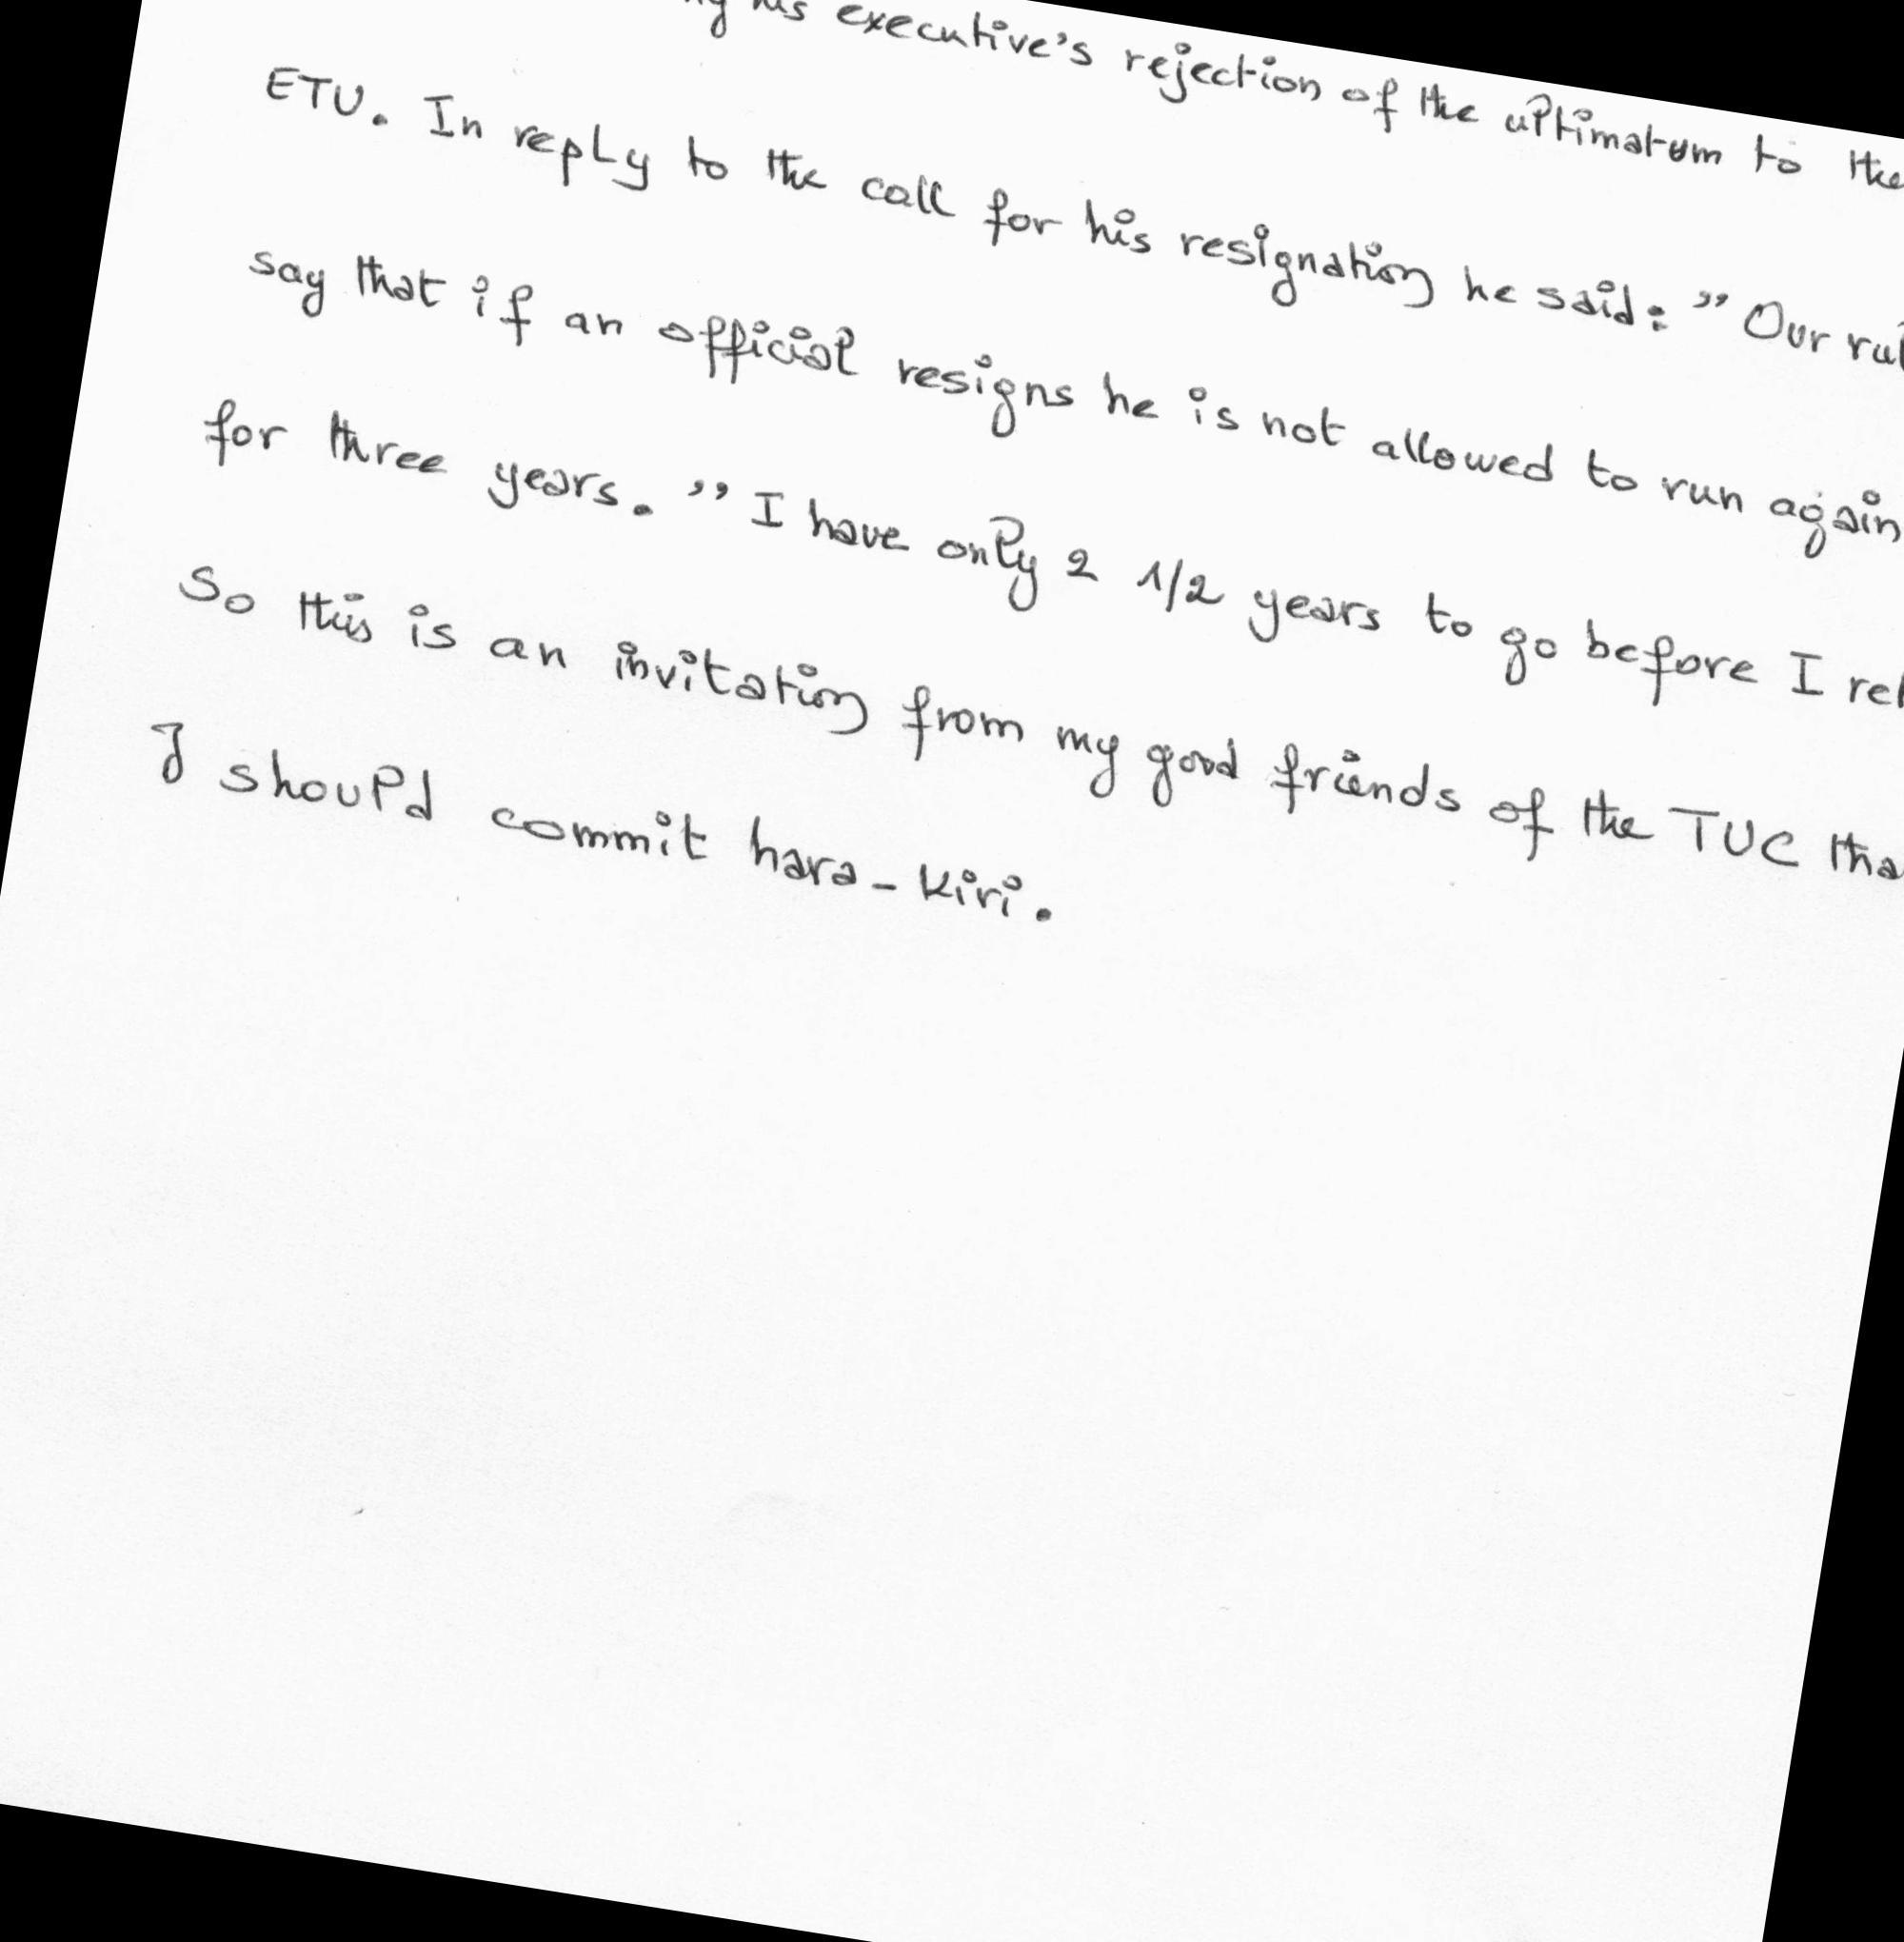 his executive's rejection of the ultimatum to the
ETU. In reply to the call for his resignation he said: "Our
say that if an official resigns he is not allowed to run again
for three years. "I have only 2 1/2 years to go before I
So this is an invitation from my good friends of the TUC
I should commit hara-kiri.